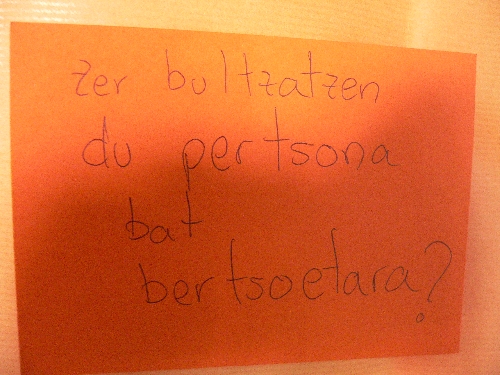 zer bultzatzen
du pertsona
bat
bertsoetara?